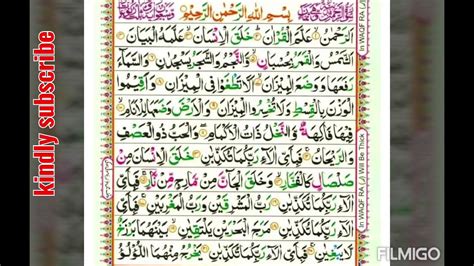 بِسْمِ اللهِ الرَّحْمٰنِ الرَّحِيْمِ
اَلرَّحْمٰنُ عَلَّمَ الْقُرْاٰنَ خَلَقَ الْاِنْسَانَ عَلَّمَهُ الْبَيَانَ
اَلشَّمْسُ وَالْقَمَرُ بِحُسْبَانٍ وَّالنَّجْمُ وَالشَّجَرُ يَسْجُدٰنِ وَالسَّمَآءَ
رَفَعَهَا وَوَضَعَ الْمِيْزَانَ اَلَّا تَطْغَوْا فِي الْمِيْزَانِ وَاَقِيْمُوا
الْوَزْنَ بِالْقِسْطِ وَلَا تُخْسِرُوا الْمِيْزَانَ وَالْاَرْضَ وَضَعَهَا لِلْاَنَامِ
فِيْهَا فَاكِهَةٌ وَّالنَّخْلُ ذَاتُ الْاَكْمَامِ وَالْحَبُّ ذُو الْعَصْفِ
وَالرَّيْحَانُ فَبِاَيِّ اٰلَآءِ رَبِّكُمَا تُكَذِّبٰنِ خَلَقَ الْاِنْسَانَ مِنْ
صَلْصَالٍ كَالْفَخَّارِ وَخَلَقَ الْجَآنَّ مِنْ مَّارِجٍ مِّنْ نَّارٍ فَبِاَيِّ
اٰلَآءِ رَبِّكُمَا تُكَذِّبٰنِ رَبُّ الْمَشْرِقَيْنِ وَرَبُّ الْمَغْرِبَيْنِ فَبِاَيِّ
اٰلَآءِ رَبِّكُمَا تُكَذِّبٰنِ مَرَجَ الْبَحْرَيْنِ يَلْتَقِيٰنِ بَيْنَهُمَا بَرْزَخٌ
لَّا يَبْغِيٰنِ فَبِاَيِّ اٰلَآءِ رَبِّكُمَا تُكَذِّبٰنِ يَخْرُجُ مِنْهُمَا اللُّؤْلُؤُ
kindly subscribe
In WAQF RA (ر) Will Be Thick
In WAQF RA
FILMIGO